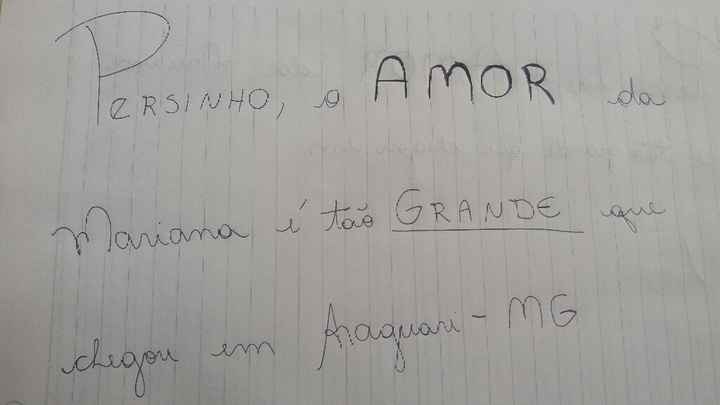 PERSINHO, o AMOR da
Mariana é tão GRANDE que
chegou em Araguari - MG